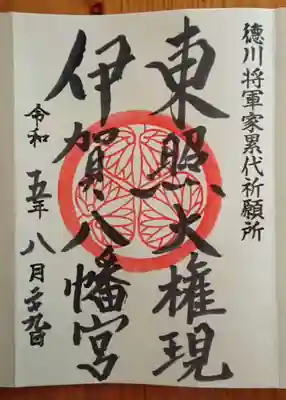 徳川将軍家累代祈願所
東照大権現
伊賀八幡宮
令和五年八月二十九日